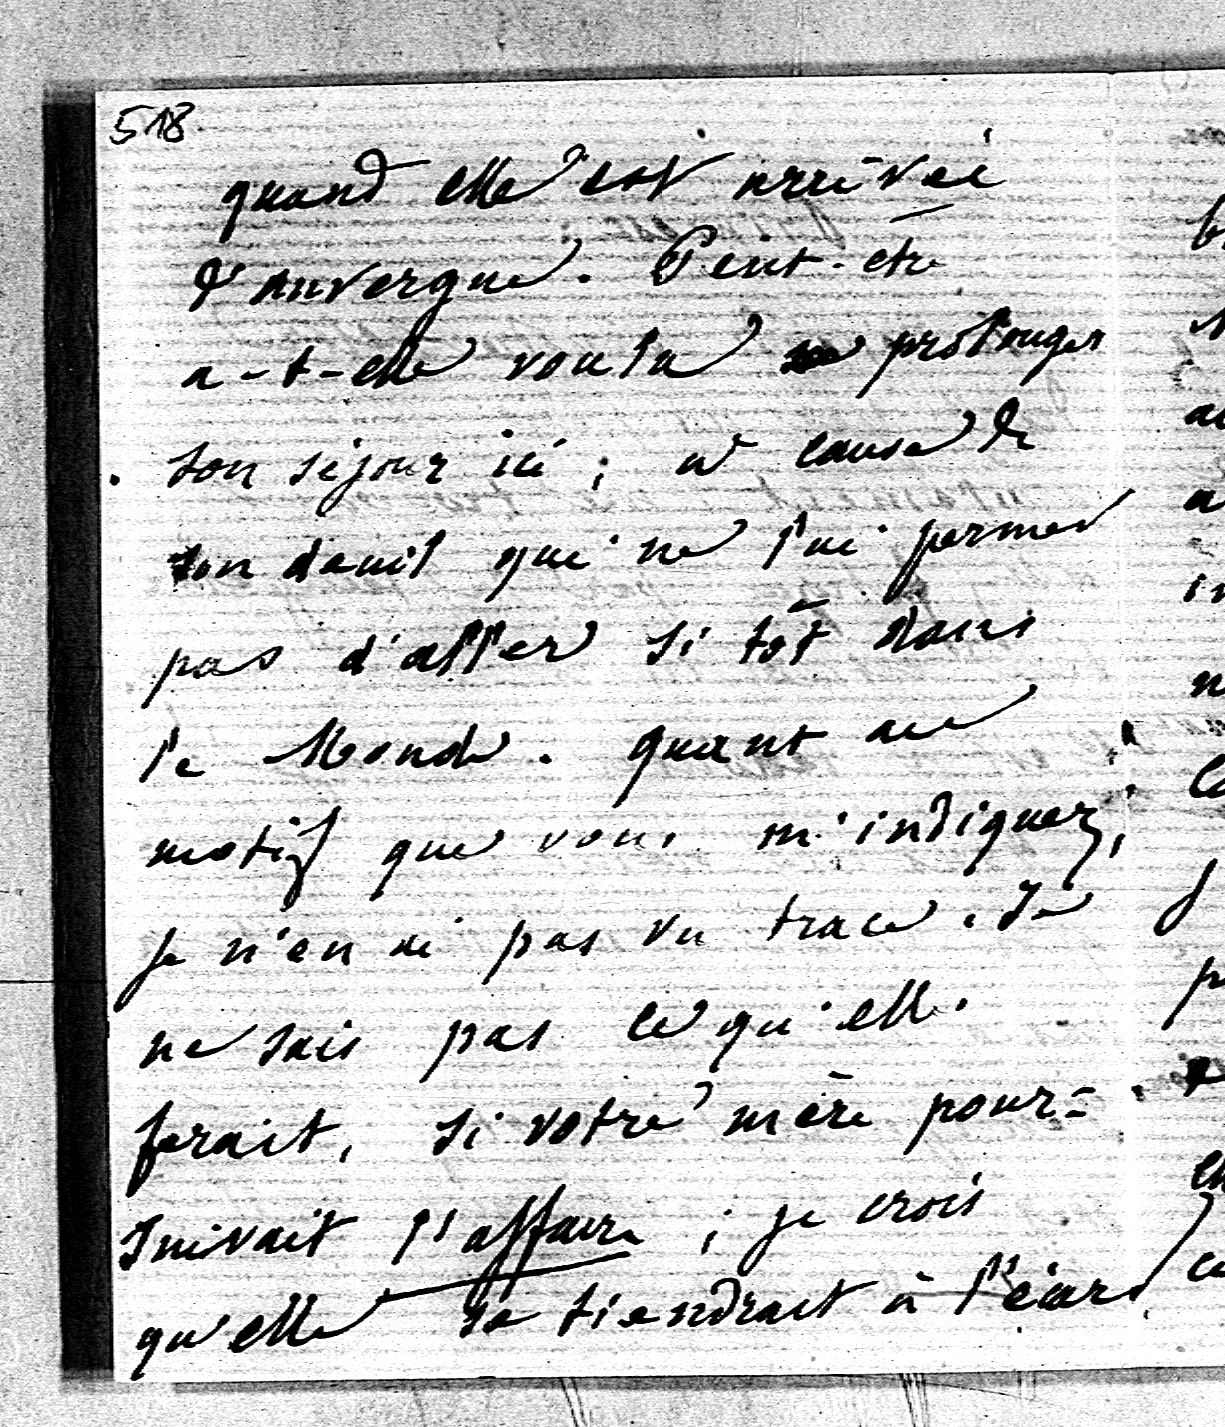 518
quand elle est arrivée
d'Auvergne. Peut-être
a-t-elle voulu prolonger
son séjour ici, à cause de
son deuil qui ne lui permet
pas d'aller si tôt dans
le Monde. quant au
motif que vous m'indiquez,
je n'en ai pas vu trace. Je
ne sais pas ce qu'elle
ferait, si votre mère pour=
suivait l'affaire ; je crois
qu'elle se tiendrait à l'écart